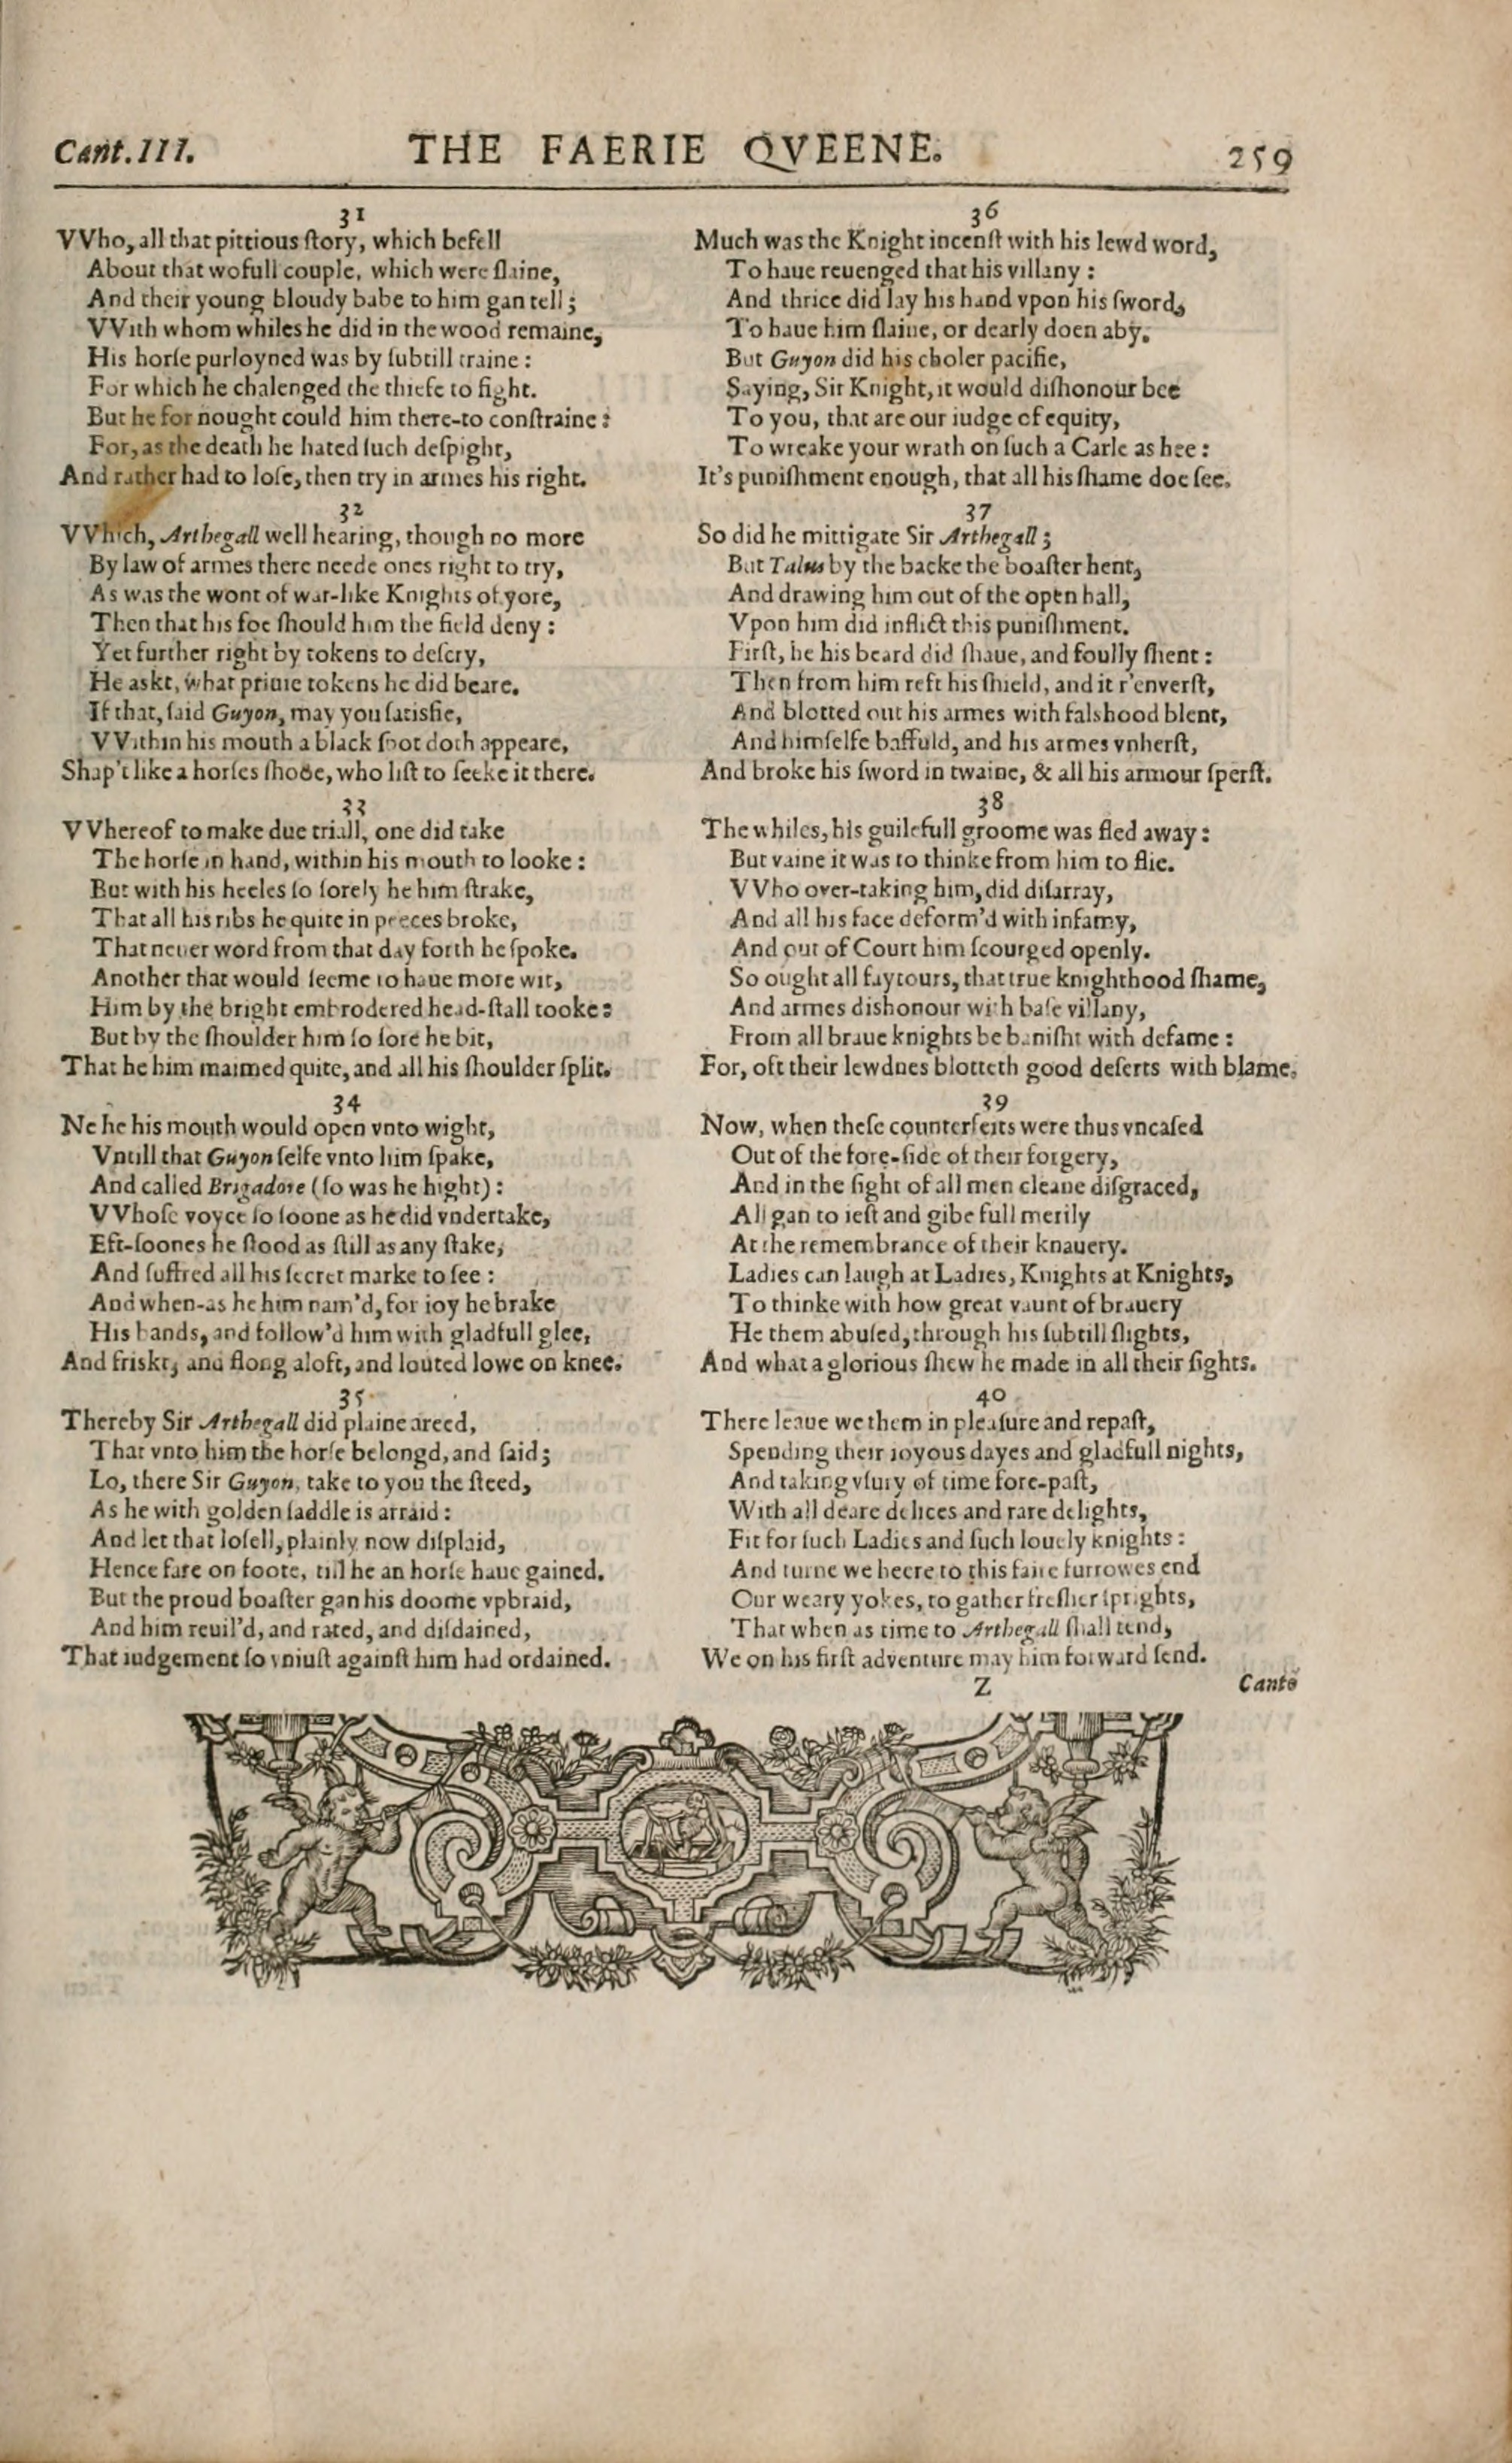 Cant. III.
THE FAERIE QVEENE.
259
31
VVho, all that pittious ſtory, which befell
About that wofull couple, which were ſlaine,
And their young bloudy babe to him gan tell;
VVith whom whiles he did in the wood remaine,
His horſe purloyned was by ſubtill traine:
For which he chalenged the thiefe to fight.
But he for nought could him there-to conſtraine:
For, as the death he hated ſuch deſpight,
And rather had to loſe, then try in armes his right.
32
VVhich, Arthegall well hearing, though no more
By law of armes there neede ones right to try,
As was the wont of war-like Knights of yore,
Then that his foe ſhould him the field deny:
Yet further right by tokens to deſcry,
He askt, what priuie tokens he did beare.
If that, ſaid Guyon, may you ſatisfie,
VVithin his mouth a black ſpot doth appeare,
Shap't like a horſes ſhooe, who liſt to ſeeke it there.
33
VVhereof to make due triall, one did take
The horſe in hand, within his mouth to looke:
But with his heeles ſo ſorely he him ſtrake,
That all his ribs he quite in peeces broke,
That neuer word from that day forth he ſpoke.
Another that would ſeeme to haue more wit,
Him by the bright embrodered head-ſtall tooke:
But by the ſhoulder him ſo ſore he bit,
That he him maimed quite, and all his ſhoulder ſplit.
34
Ne he his mouth would open vnto wight,
Vntill that Guyon ſelfe vnto him ſpake,
And called Brigadore (ſo was he hight):
VVhoſe voyce ſo ſoone as he did vndertake,
Eft-ſoones he ſtood as ſtill as any ſtake,
And ſuffred all his ſecret marke to ſee:
And when-as he him nam'd, for ioy he brake
His bands, and follow'd him with gladfull glee,
And friskt, and flong aloft, and louted lowe on knee.
35
Thereby Sir Arthegall did plaine areed,
That vnto him the horſe belongd, and ſaid;
Lo, there Sir Guyon, take to you the ſteed,
As he with golden ſaddle is arraid:
And let that loſell, plainly now diſplaid,
Hence fare on foote, till he an horſe haue gained.
But the proud boaſter gan his doome vpbraid,
And him reuil'd, and rated, and diſdained,
That iudgement ſo vniuſt againſt him had ordained.
36
Much was the Knight incenſt with his lewd word,
To haue reuenged that his villany:
And thrice did lay his hand vpon his ſword,
To haue him ſlaine, or dearly doen aby.
But Guyon did his choler pacifie,
Saying, Sir Knight, it would diſhonour bee
To you, that are our iudge of equity,
To wreake your wrath on ſuch a Carle as hee:
It's puniſhment enough, that all his ſhame doe ſee.
37
So did he mittigate Sir Arthegall;
But Talus by the backe the boaſter hent,
And drawing him out of the open hall,
Vpon him did inflict this puniſhment.
Firſt, he his beard did ſhaue, and foully ſhent:
Then from him reft his ſhield, and it r'enverſt,
And blotted out his armes with falshood blent,
And himſelfe baffuld, and his armes vnherſt,
And broke his ſword in twaine, & all his armour ſperſt.
38
The whiles, his guilefull groome was fled away:
But vaine it was to thinke from him to flie.
VVho over-taking him, did diſarray,
And all his face deform'd with infamy,
And out of Court him ſcourged openly.
So ought all faytours, that true knighthood ſhame,
And armes dishonour with baſe villany,
From all braue knights be baniſht with defame:
For, oft their lewdnes blotteth good deſerts with blame.
39
Now, when theſe counterfeits were thus vncaſed
Out of the fore-ſide of their forgery,
And in the ſight of all men cleane diſgraced,
All gan to ieſt and gibe full merily
At the remembrance of their knauery.
Ladies can laugh at Ladies, Knights at Knights,
To thinke with how great vaunt of brauery
He them abuſed, through his ſubtill ſlights,
And what a glorious ſhew he made in all their ſights.
40
There leaue we them in pleaſure and repaſt,
Spending their ioyous dayes and gladfull nights,
And taking vſury of time fore-paſt,
With all deare delices and rare delights,
Fit for ſuch Ladies and ſuch louely knights:
And turne we heere to this faire furrowes end
Our weary yokes, to gather freſher ſprights,
That when as time to Arthegall ſhall tend,
We on his firſt adventure may him forward ſend.
Z
Canto